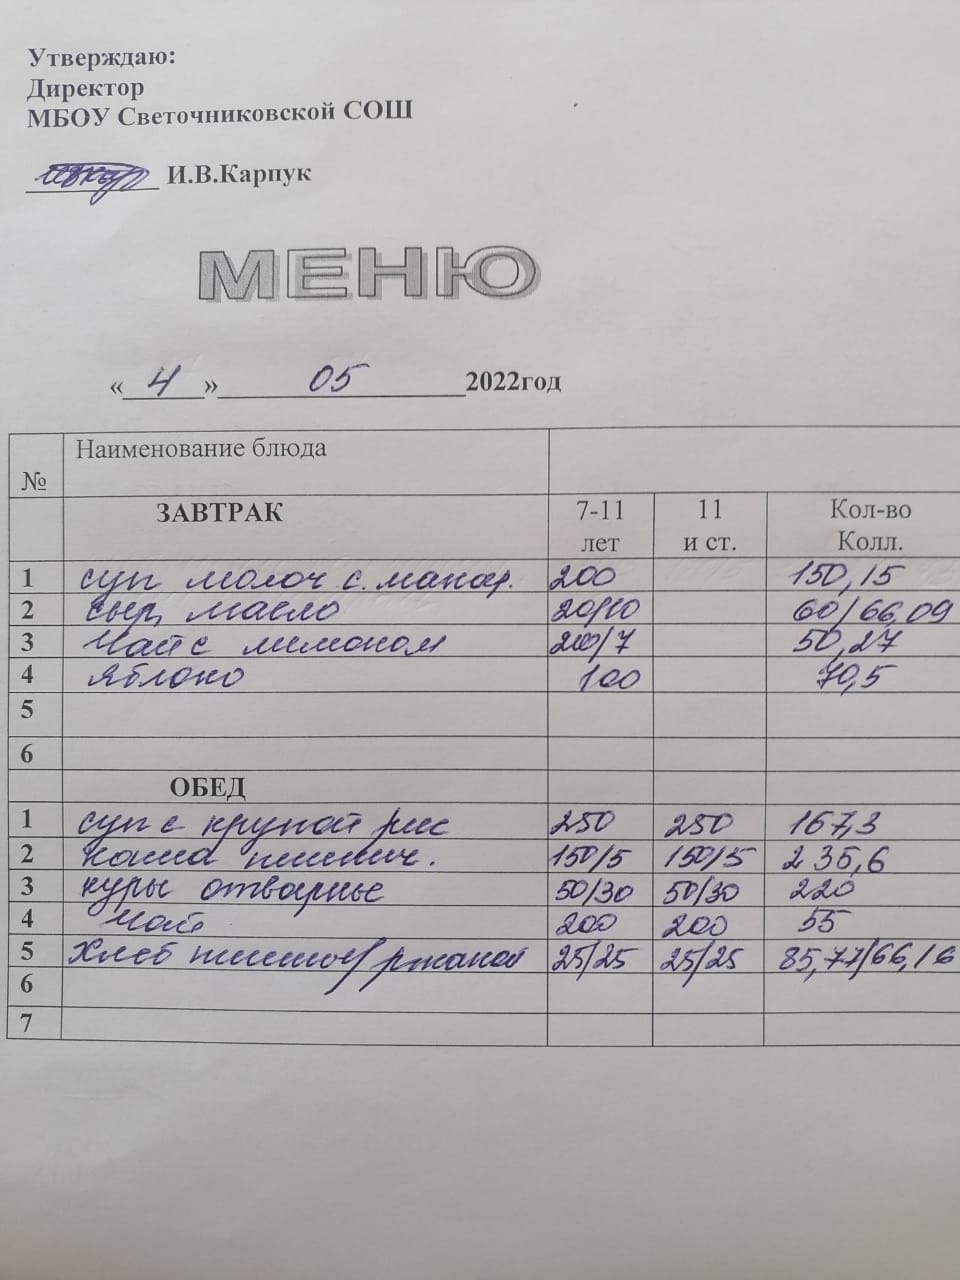 Утверждаю:
Директор
МБОУ Светочниковской СОШ
И.В.Карпук
МЕНЮ
« 4 » 05 2022год
№ Наименование блюда
ЗАВТРАК 7-11 лет 11 и ст. Кол-во Колл.
1 суп молоч с. макар. 200 150,15
2 сыр, масло 20/10 60/66,09
3 Чай с лимоном 200/7 50,27
4 яблоко 100 70,5
5
6
ОБЕД
1 суп с крупой рис 250 250 167,3
2 каша пшенич. 150/5 150/5 235,6
3 куры отварные 50/30 50/30 220
4 чай 200 200 55
5 Хлеб ржаной 25/25 25/25 85,77/66,16
6
7